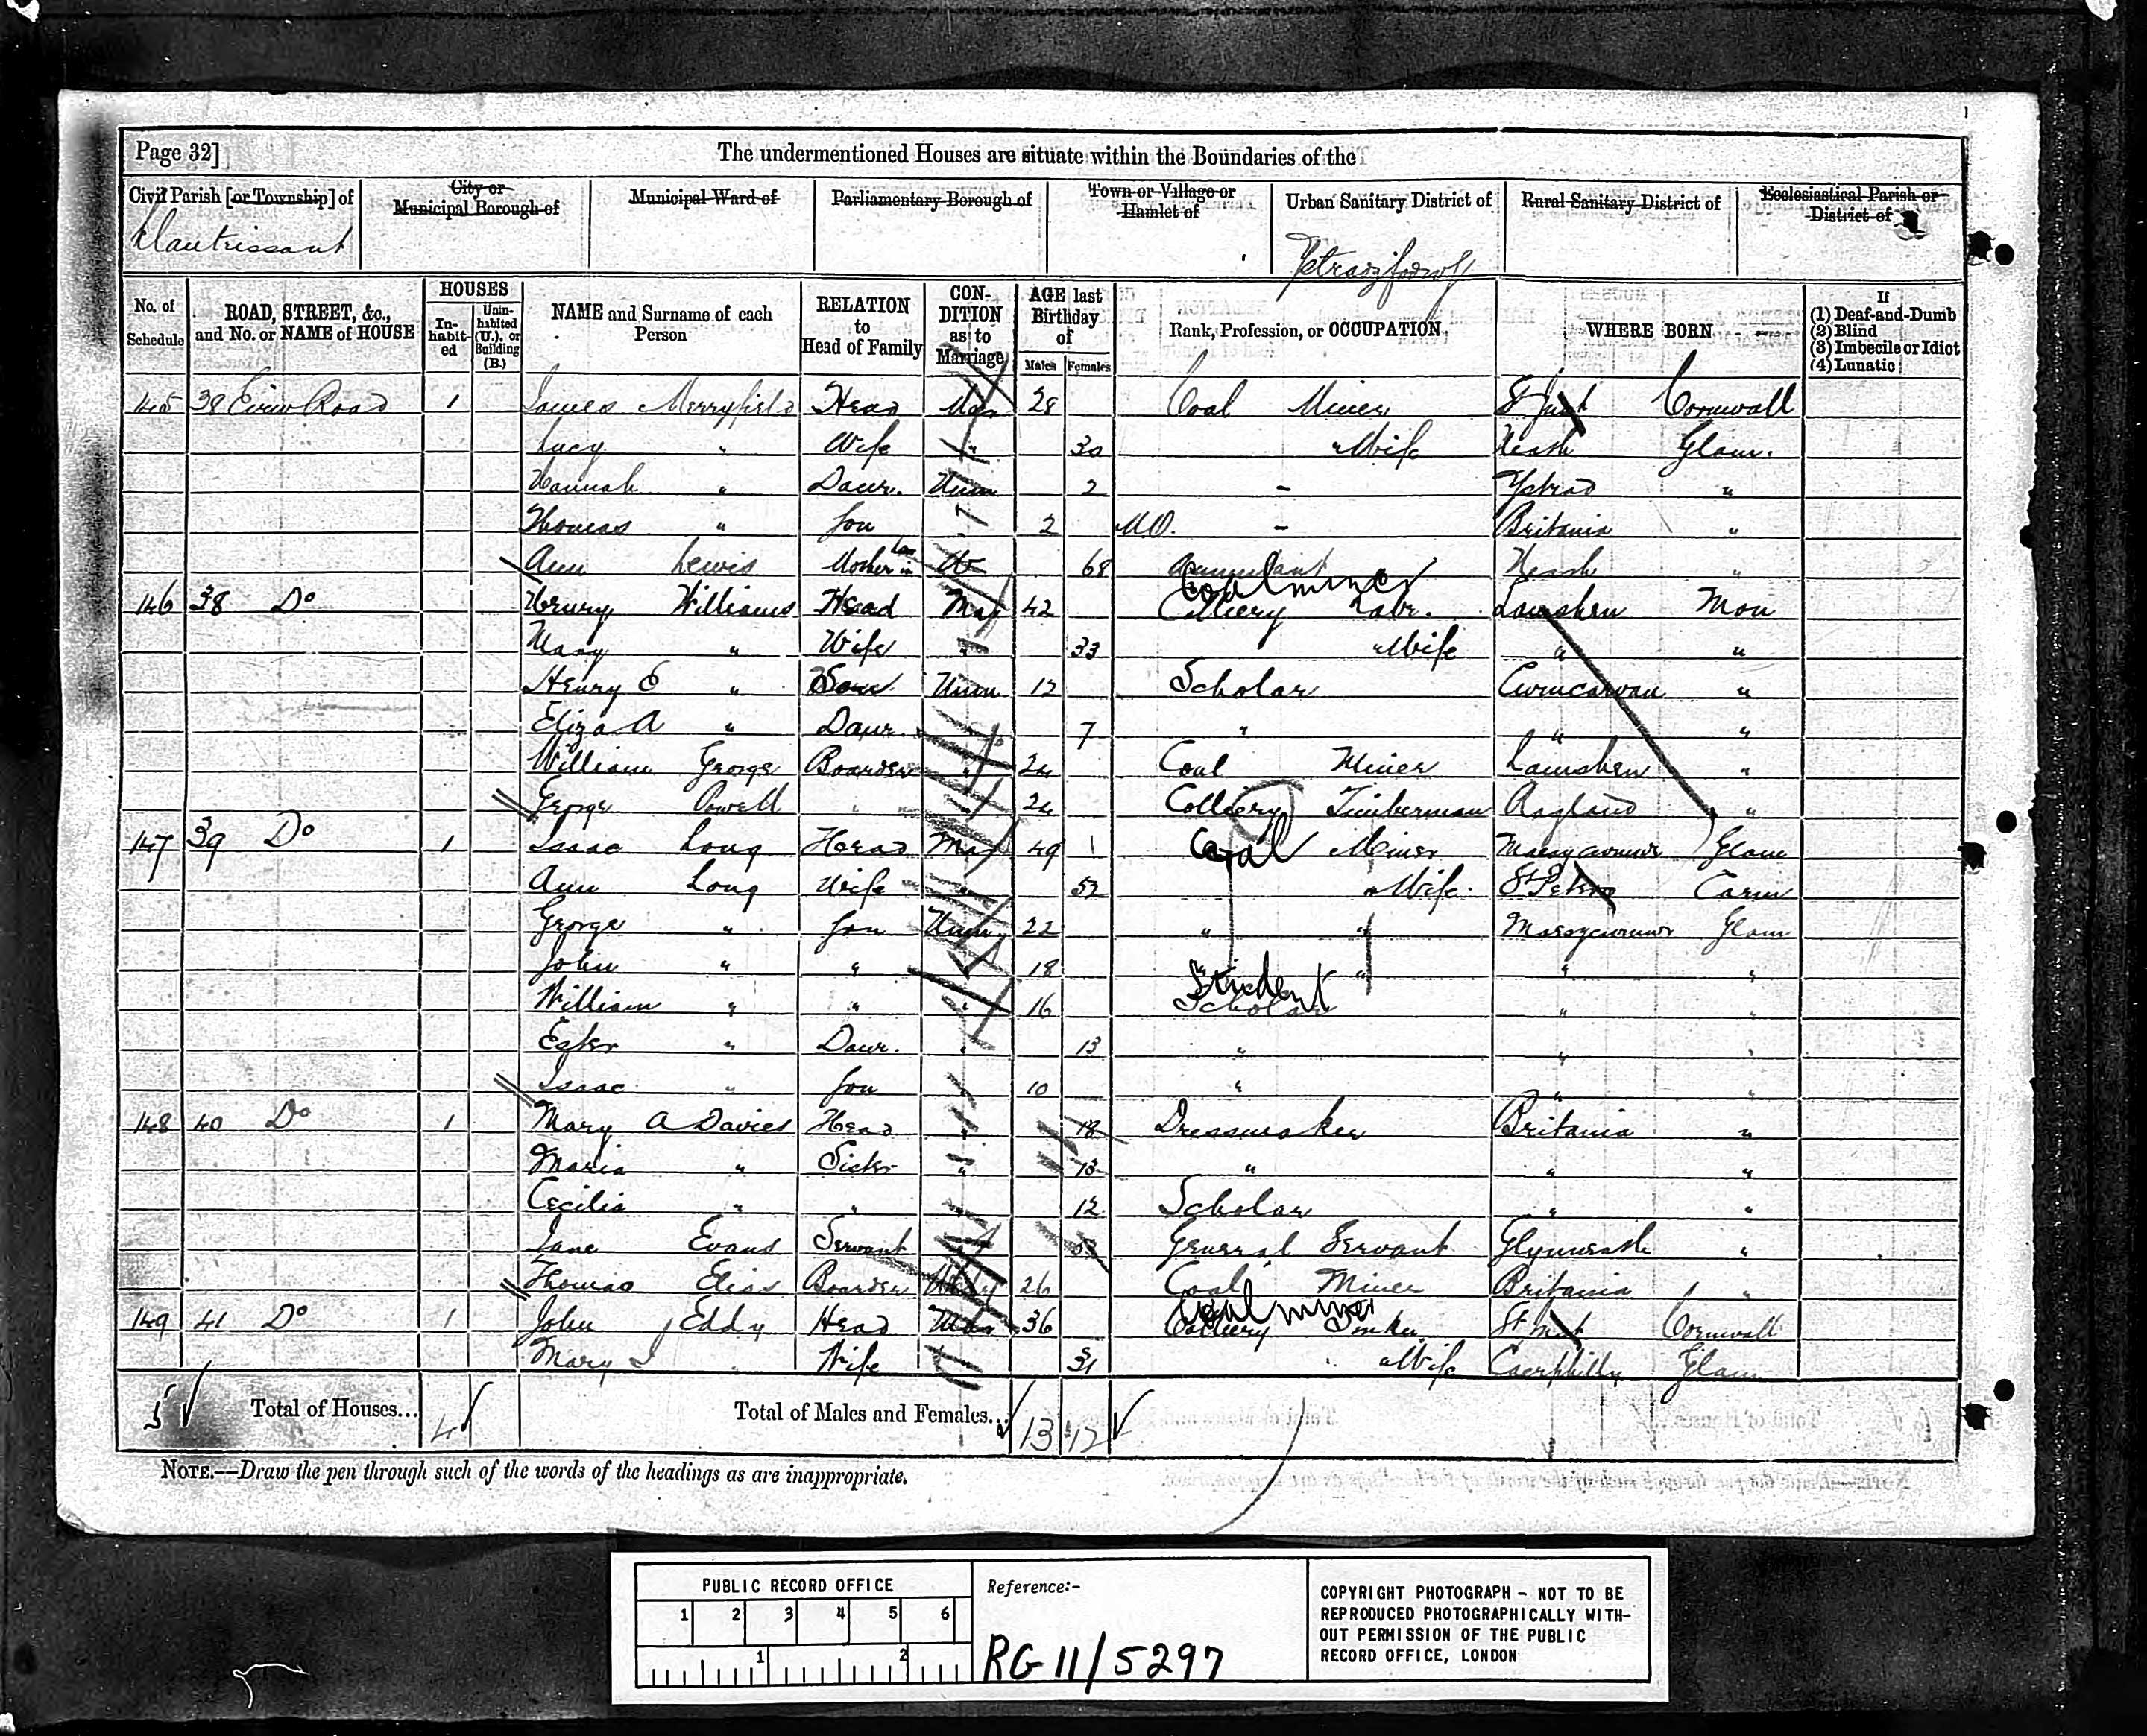 Page 32] The undermentioned Houses are situate within the Boundaries of the
Civil Parish [or Township] of City or Municipal Borough of Municipal Ward of Parliamentary Borough of Town or Village or Hamlet of Urban Sanitary District of Rural Sanitary District of Ecclesiastical Parish or District of
Llantrissant Ystradyfodwg
No. of Schedule ROAD, STREET, &c., and No. or NAME of HOUSE HOUSES Inhabited Uninhabited (U.), or Building (B.) NAME and Surname of each Person RELATION to Head of Family CONDITION as to Marriage AGE last Birthday of Males Females Rank, Profession, or OCCUPATION WHERE BORN If (1) Deaf-and-Dumb (2) Blind (3) Imbecile or Idiot (4) Lunatic
145 38 Road 1 James Merryfield Head Mar 28 Coal Miner St Just Cornwall
Lucy " Wife " 30 " Wife Neath Glam.
Hannah " Daur. Unm 2 - Ystrad "
Thomas " Son " 2 MO. - Britania "
Ann Lewis Mother in Law W 68 Annuitant Neath "
146 38 Do Henry Williams Head Mar 42 Colliery Labr. Coal miner Mon
Mary " Wife " 33 " Wife " "
Henry E " Son Unm 12 Scholar Cwmcarvan "
Eliza A " Daur. " 7 " " "
William George Boarder " 24 Coal Miner "
George Powell " " 24 Colliery Timberman Ragland "
147 39 Do 1 Isaac Long Head Mar 49 Coal Miner Glam
Ann Long Wife " 52 " Wife St Peters Carm
George " Son Unm 22 " " Glam
John " " " 18 " " " "
William " " " 16 Scholar Student " "
Ester " Daur. " 13 " " "
Isaac " Son " 10 " " "
148 40 Do 1 Mary A Davies Head " 18 Dressmaker Britania "
Maria " Sister " 13 " " "
Cecilia " " " 12 Scholar " "
Jane Evans Servant General Servant Glynneath "
Thomas Elias Boarder 26 Coal Miner Britania "
149 41 Do 1 John J Eddy Head Mar 36 Colliery Sinker Coal miner St Just Cornwall
Mary J " Wife " 31 " Wife Caerphilly Glam
5 Total of Houses... 4 Total of Males and Females... 13 12
NOTE.—Draw the pen through such of the words of the headings as are inappropriate.
PUBLIC RECORD OFFICE
1 2 3 4 5 6
1 2
Reference:-
RG 11/5297
COPYRIGHT PHOTOGRAPH – NOT TO BE
REPRODUCED PHOTOGRAPHICALLY WITH-
OUT PERMISSION OF THE PUBLIC
RECORD OFFICE, LONDON